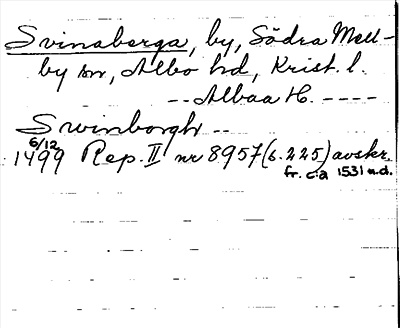 Svinaberga, by, Södra Mell-
by sn, Albo hd, Krist. l.
-- Albaa H. ----
Swinborgh --
6/12
1499 Rep. II nr 8957 (s. 225) avskr.
fr. c:a 1531 u.d.